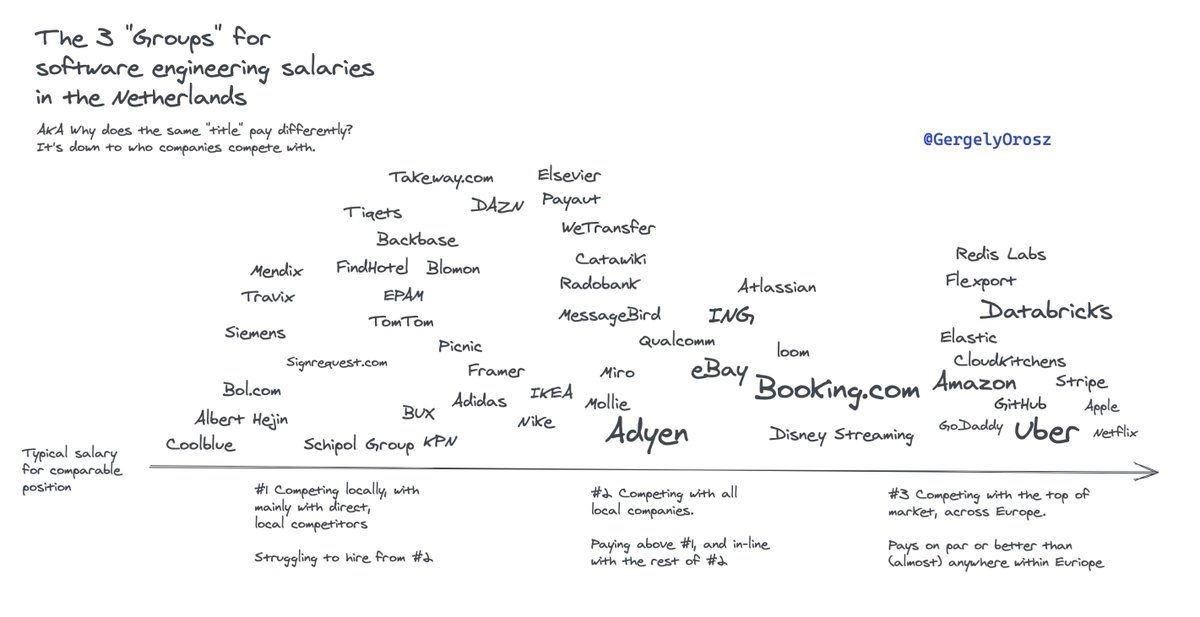 The 3 "Groups" for
software engineering salaries
in the Netherlands
AKA Why does the same "title" pay differently?
It's down to who companies compete with.
@GergelyOrosz
Takeway.com
Elsevier
DAZN
Payaut
Tiqets
WeTransfer
Backbase
Catawiki
Redis Labs
Mendix
FindHotel
Blomon
Radobank
Atlassian
Flexport
Travix
EPAM
MessageBird
ING
Databricks
Siemens
TomTom
Qualcomm
Elastic
Signrequest.com
Picnic
loom
CloudKitchens
Framer
Miro
eBay
Amazon
Stripe
Bol.com
Adidas
IKEA
Mollie
Booking.com
GitHub
Apple
Albert Hejin
BUX
Nike
Adyen
Disney Streaming
GoDaddy
Uber
Netflix
Coolblue
Schipol Group
KPN
Typical salary
for comparable
position
#1 Competing locally, with
mainly with direct,
local competitors
Struggling to hire from #2
#2 Competing with all
local companies.
Paying above #1, and in-line
with the rest of #2
#3 Competing with the top of
market, across Europe.
Pays on par or better than
(almost) anywhere within Euriope